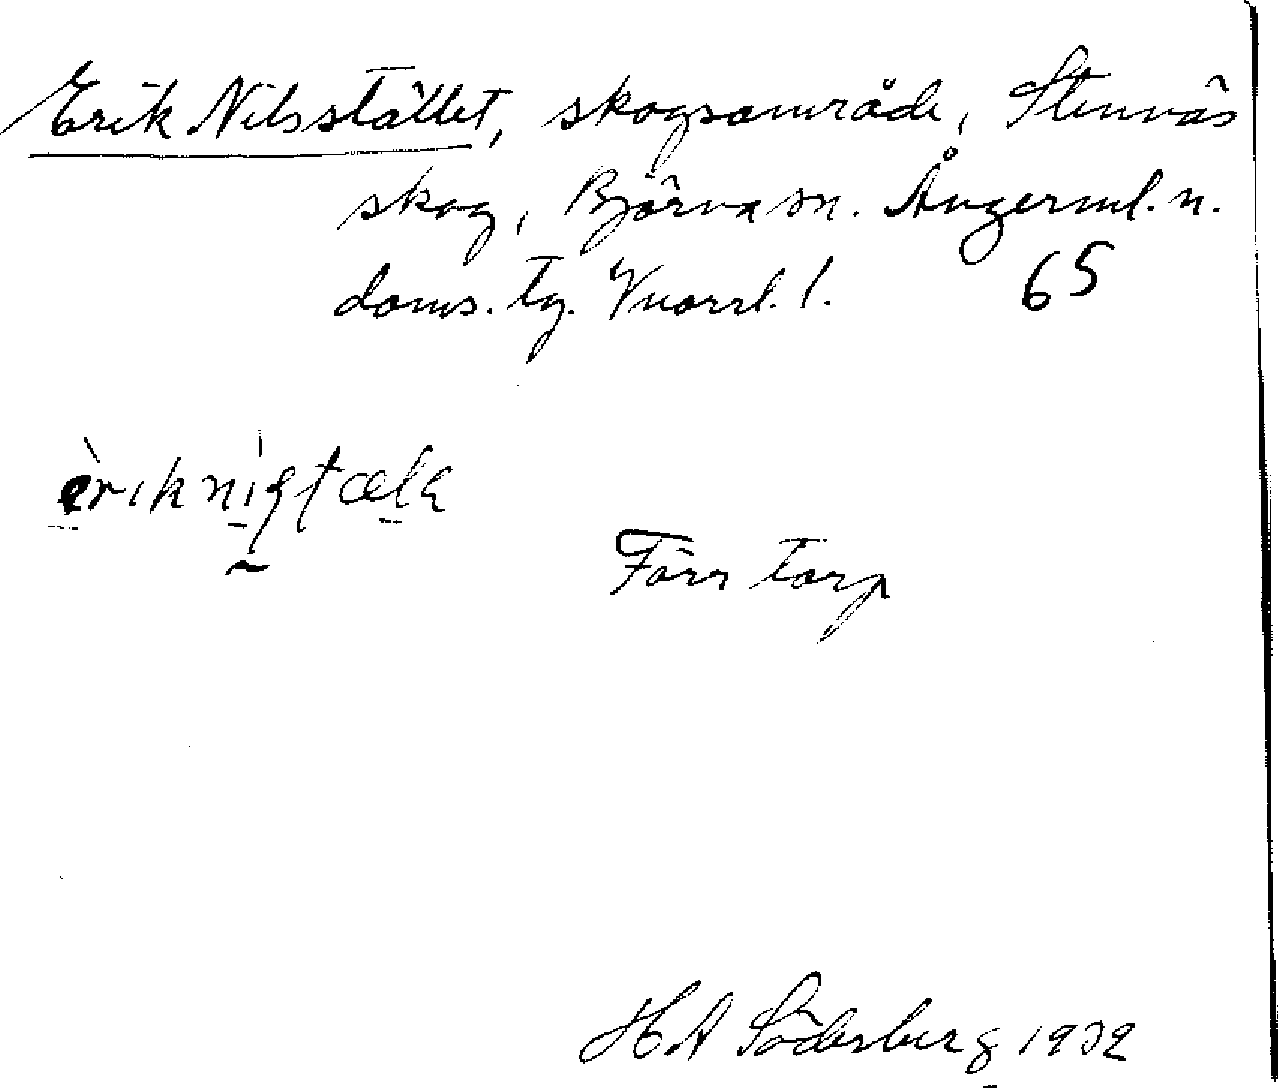 Erik Nilsstället, skogsområde, Stennäs
skog, Björna sn. Ångerml. n.
doms. tg. Vnorrl. l. 65
Förr torp
H A Söderberg 1932